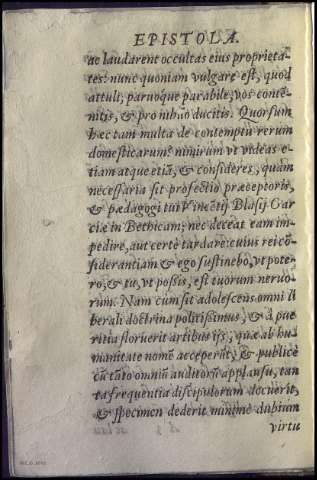 EPISTOLA.
ac laudarent occultas eius proprieta-
tes: nunc quoniam vulgare est, quod
attuli, paruoque parabile, vos contē-
nitis, & pro nihilo ducitis. Quorsum
hæc tam multa de contemptu rerum
domesticarum? nimirum vt videas e-
tiam atque etiā, & consideres, quàm
necessaria sit profectio præceptoris,
& pædagogi tui Blasij Gar
ciæ in Bethicam; nec deceat eam im-
pedire, aut certè tardare: cuius rei cō-
siderantiam & ego sustinebo, vt pote-
ro, & tu, vt possis, est tuorum neruo-
rum. Nam cùm sit adolescens omni li
berali doctrina politissimus, & à pue
ritia floruerit artibus ijs, quæ ab hu
manitate nomē acceperūt, & publicè
cū tāto omniū auditorū applausu, tan
ta frequentia discipulorum docuerit,
& specimen dederit minimè dubium
virtu